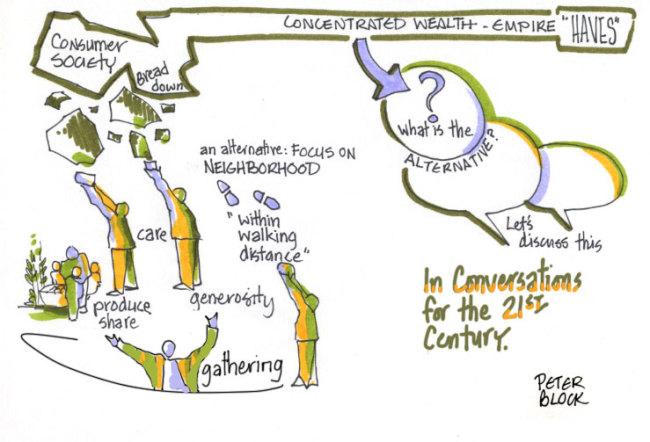 CONCENTRATED WEALTH - EMPIRE "HAVES"
CONSUMER
SOCIETY
Bread
down
?
What is the
ALTERNATIVE?
Let's
discuss this
an alternative: FOCUS ON
NEIGHBORHOOD
"within
walking
distance"
care
produce
share
generosity
gathering
In Conversations
for the 21ST
Century.
PETER
BLOCK